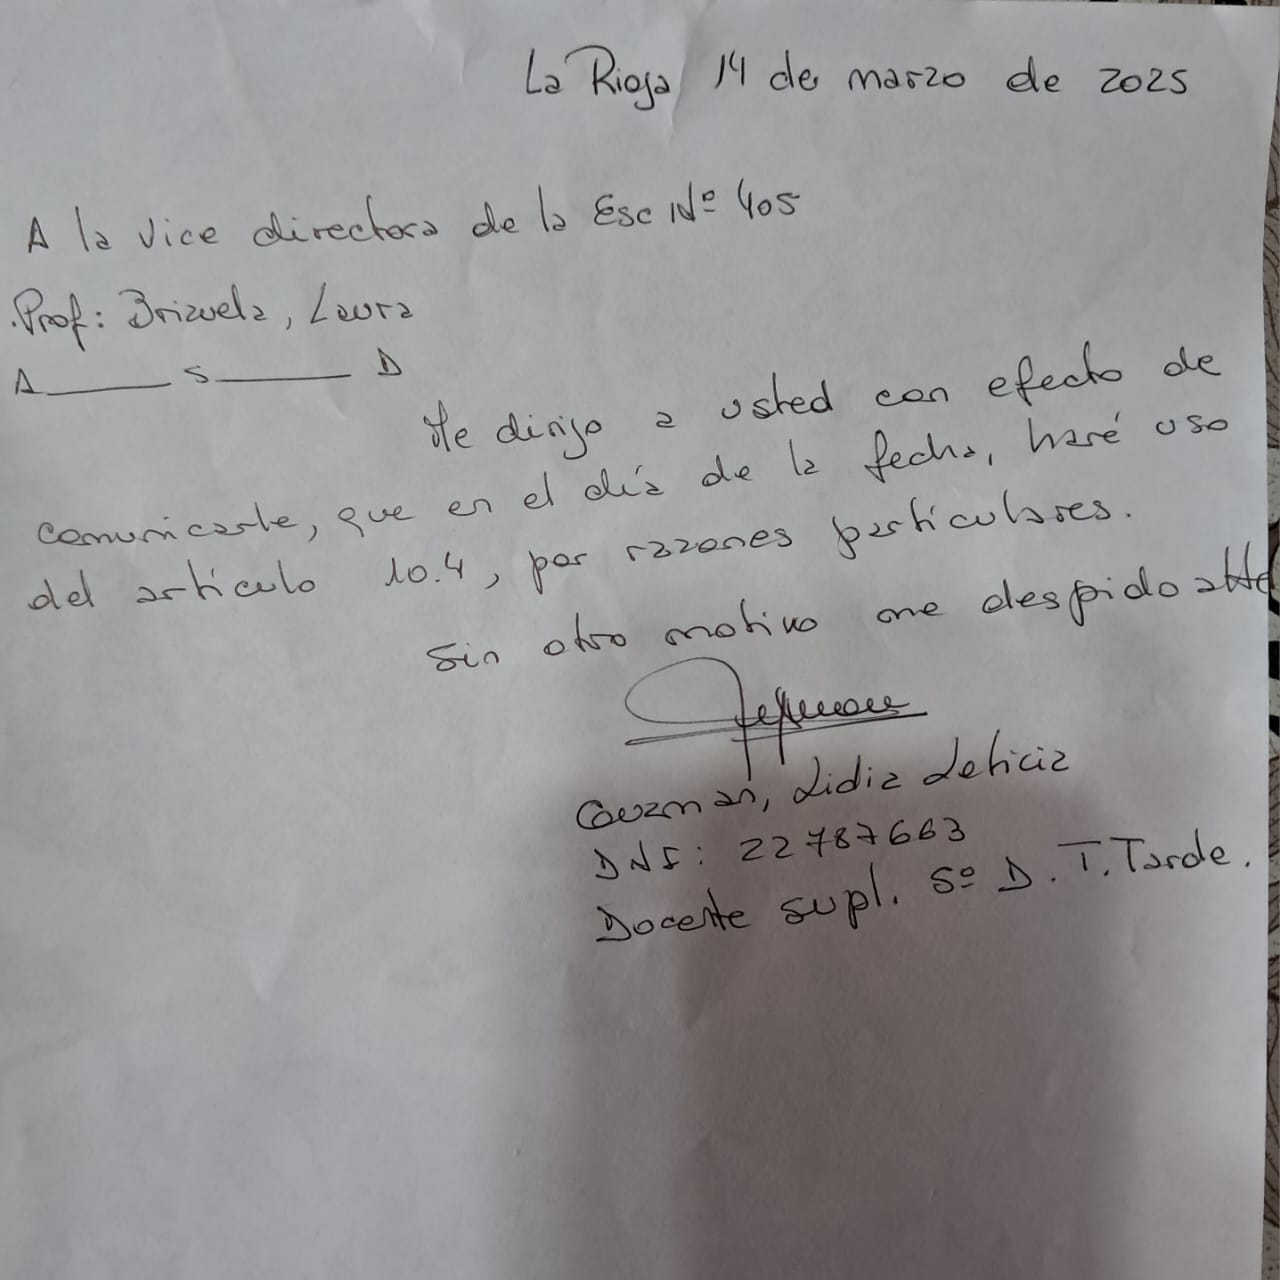 La Rioja 14 de marzo de 2025
A la vice directora de la Esc Nº 405
Prof: Brizuela, Laura
A______ S______ D
Me dirijo a usted con efecto de
comunicarle, que en el día de la fecha, haré uso
del artículo 10.4, por razones particulares.
Sin otro motivo me despido atte
Guzman, Lidia Leticia
DNI: 22787663
Docente supl. 5º D. T. Tarde.